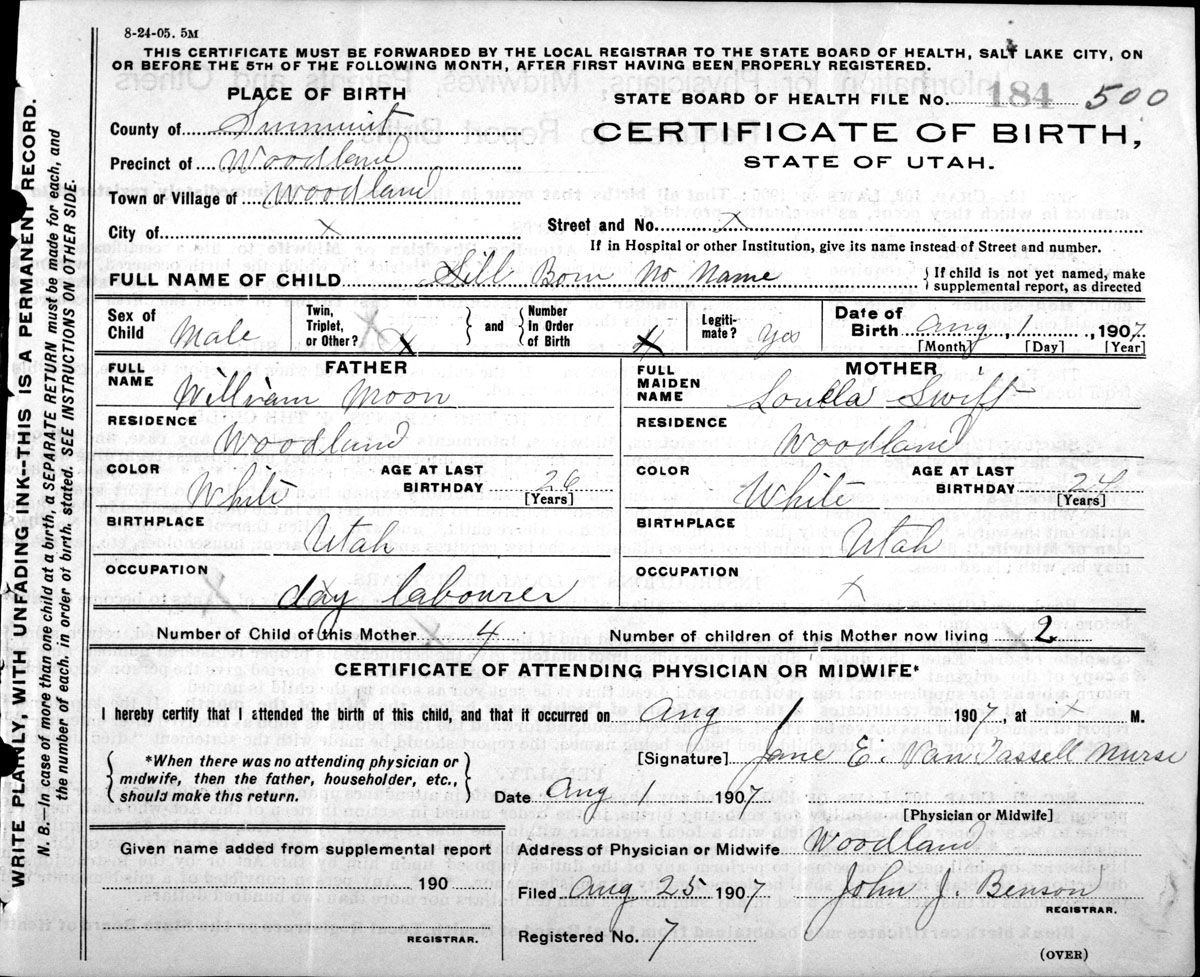 8-24-05. 5M
THIS CERTIFICATE MUST BE FORWARDED BY THE LOCAL REGISTRAR TO THE STATE BOARD OF HEALTH, SALT LAKE CITY, ON
OR BEFORE THE 5TH OF THE FOLLOWING MONTH, AFTER FIRST HAVING BEEN PROPERLY REGISTERED.
WRITE PLAINLY, WITH UNFADING INK--THIS IS A PERMANENT RECORD.
N. B.--In case of more than one child at a birth, a SEPARATE RETURN must be made for each, and
the number of each, in order of birth, stated. SEE INSTRUCTIONS ON OTHER SIDE.
PLACE OF BIRTH
STATE BOARD OF HEALTH FILE No. 184 500
County of Summit
CERTIFICATE OF BIRTH,
Precinct of Woodland
STATE OF UTAH.
Town or Village of Woodland
City of x Street and No. x
If in Hospital or other Institution, give its name instead of Street and number.
FULL NAME OF CHILD Sill Born No Name { If child is not yet named, make
supplemental report, as directed
Sex of Child Male Twin, Triplet, or Other? x } and { Number In Order of Birth x Legiti-mate? Yes Date of Birth Aug 1, 1907
[Month] [Day] [Year]
FATHER MOTHER
FULL NAME William Moon FULL MAIDEN NAME Louella Swift
RESIDENCE Woodland RESIDENCE Woodland
COLOR White AGE AT LAST BIRTHDAY 26 [Years] COLOR White AGE AT LAST BIRTHDAY 24 [Years]
BIRTHPLACE Utah BIRTHPLACE Utah
OCCUPATION day labourer OCCUPATION x
Number of Child of this Mother 4 Number of children of this Mother now living 2
CERTIFICATE OF ATTENDING PHYSICIAN OR MIDWIFE*
I hereby certify that I attended the birth of this child, and that it occurred on Aug 1 1907, at x M.
{ *When there was no attending physician or
midwife, then the father, householder, etc.,
should make this return. }
[Signature] Jane E. Van Tassell Nurse
Date Aug 1 1907
[Physician or Midwife]
Given name added from supplemental report
190
REGISTRAR.
Address of Physician or Midwife Woodland
Filed Aug 25 1907 John J. Benson
REGISTRAR.
Registered No. 7
(OVER)